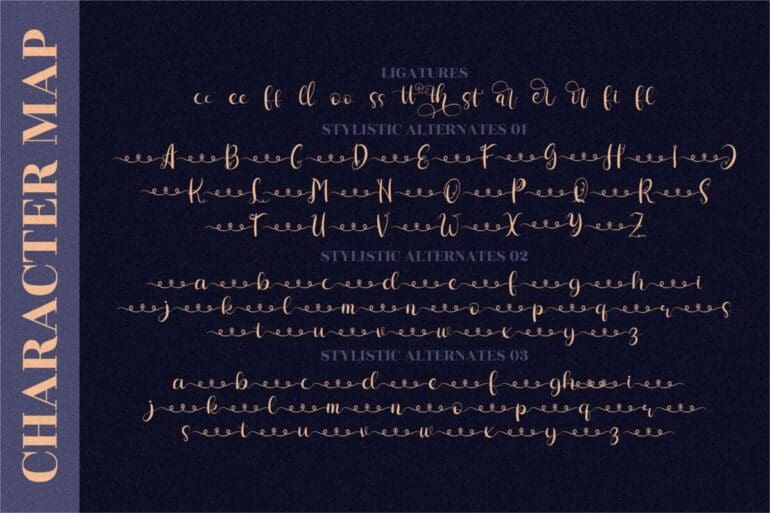 CHARACTER MAP
LIGATURES
cc ee ff ll oo ss tt th st ar er ir fi fl
STYLISTIC ALTERNATES 01
A B C D E F G H I J
K L M N O P Q R S
T U V W X Y Z
STYLISTIC ALTERNATES 02
a b c d e f g h i
j k l m n o p q r s
t u v w x y z
STYLISTIC ALTERNATES 03
a b c d e f g h i
j k l m n o p q r
s t u v w x y z